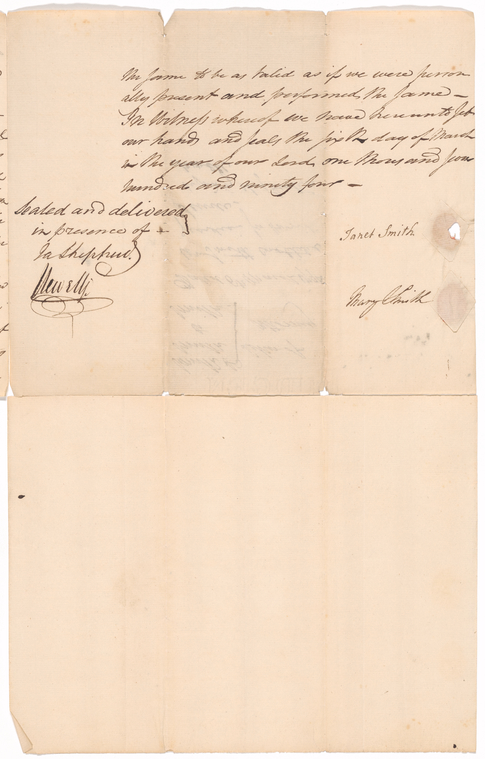 the same to be as valid as if we were person
ally present and performed the same –
In Witness whereof we have hereunto set
our hands and seals the sixth day of March
in the year of our Lord one thousand seven
hundred and ninety four –
Sealed and delivered
in presence of
Janet Smith
Mary Smith